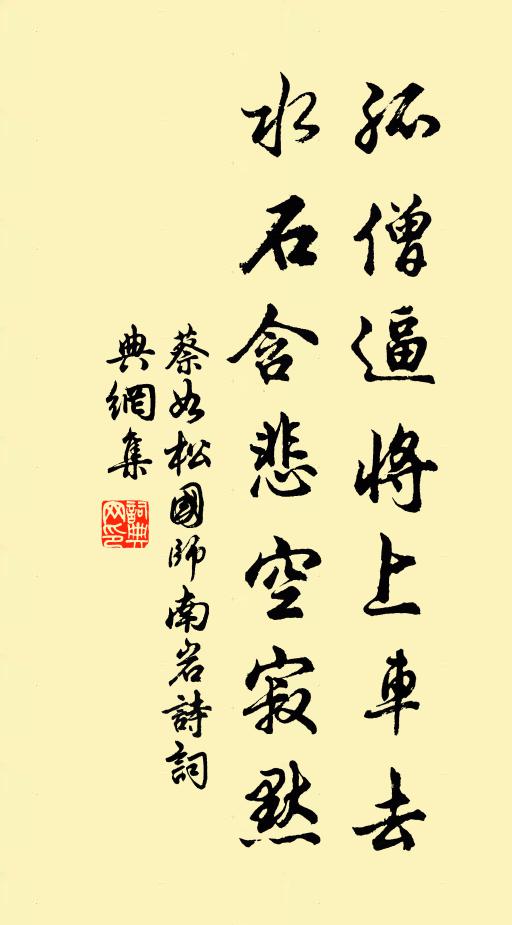 孤僧逼將上車去
水石含悲空寂默
蔡如松國師南岩詩詞
典網集
詞典網印